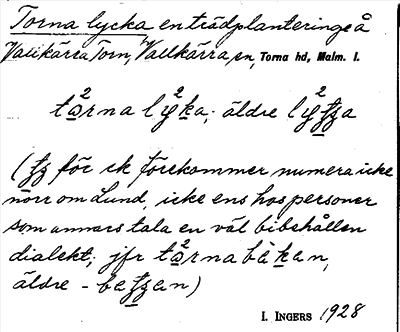 Torna lycka en trädplantering å
Vallkärra Torn, Vallkärra sn, Torna hd, Malm. l.
tårna lyka; äldre ly
( för ck förekommer numera icke
norr om Lund, icke ens hos personer
som annars tala en väl bibehållen
dialekt; jfr tårna båkan,
äldre -
I. INGERS 1928